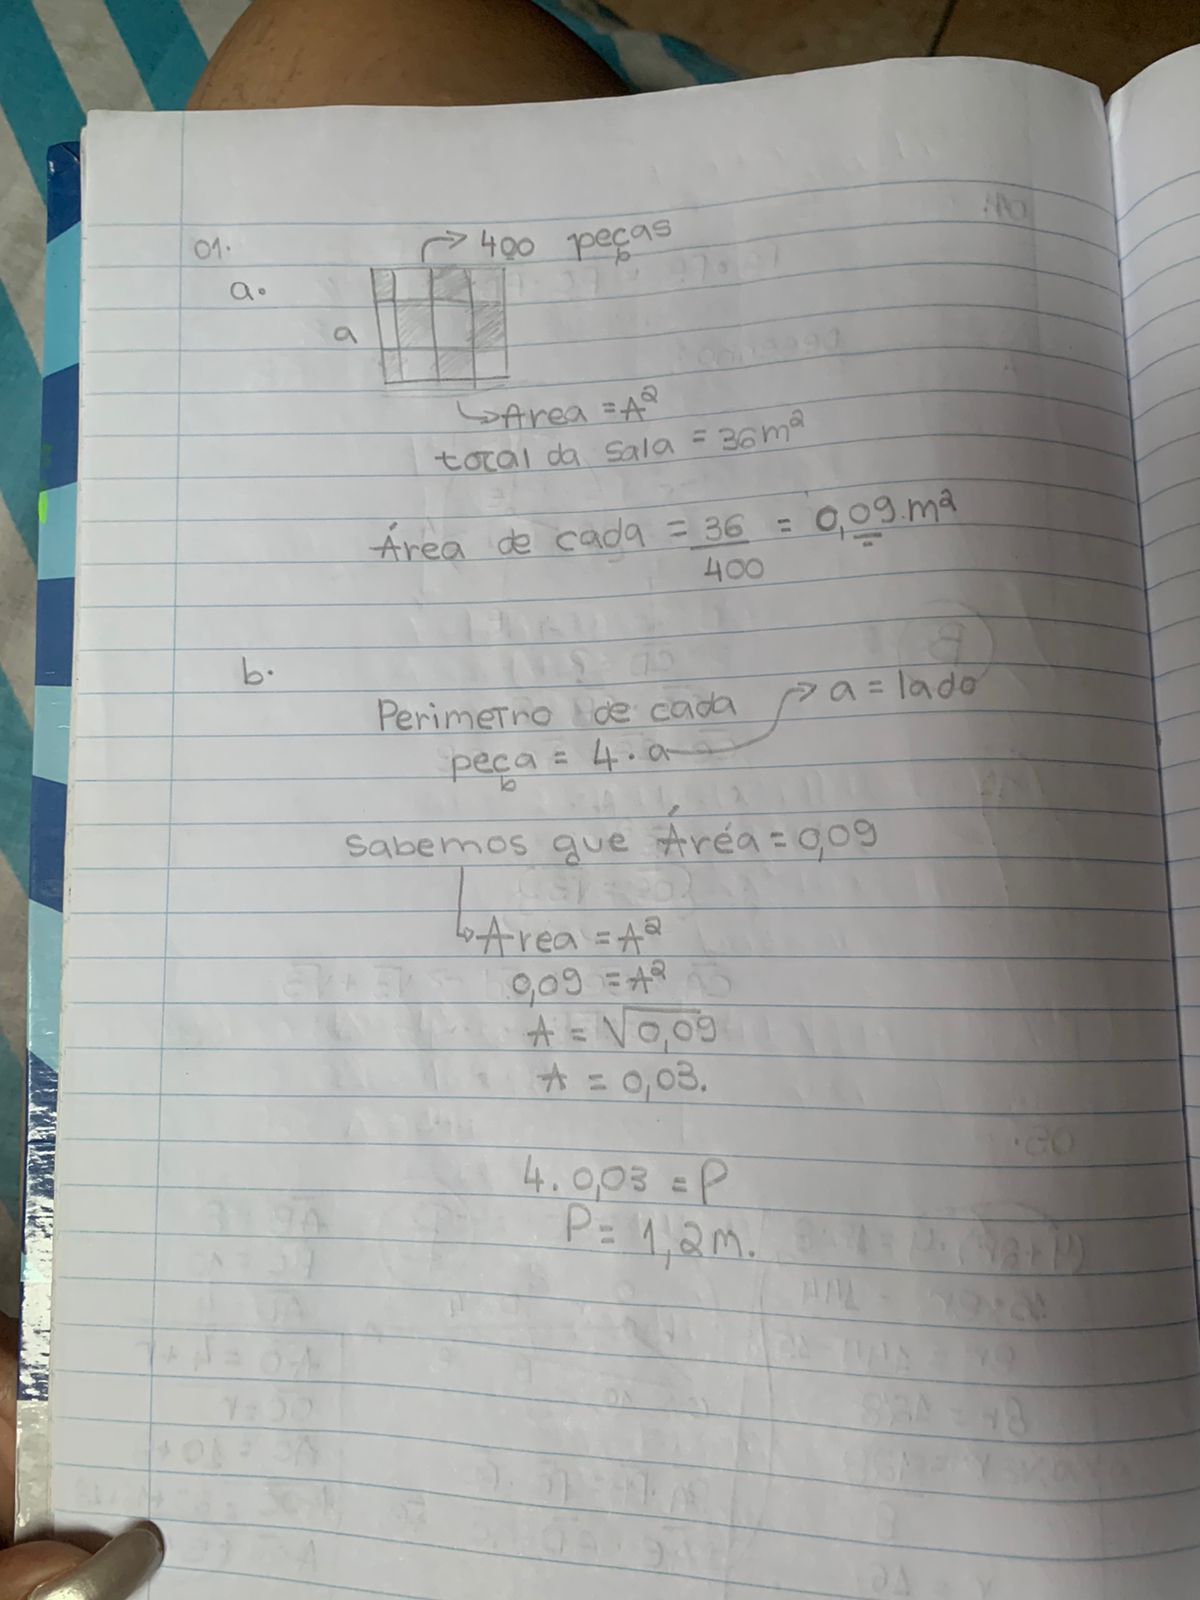 01.
→ 400 peças
a.
a
↳ Area = A²
total da sala = 36m²
Área de cada = 36/400 = 0,09.m²
b.
Perimetro de cada → a = lado
peça = 4 . a
Sabemos que Áréa = 0,09
↳ Area = A²
0,09 = A²
A = √0,09
A = 0,03.
4. 0,03 = P
P = 1,2m.